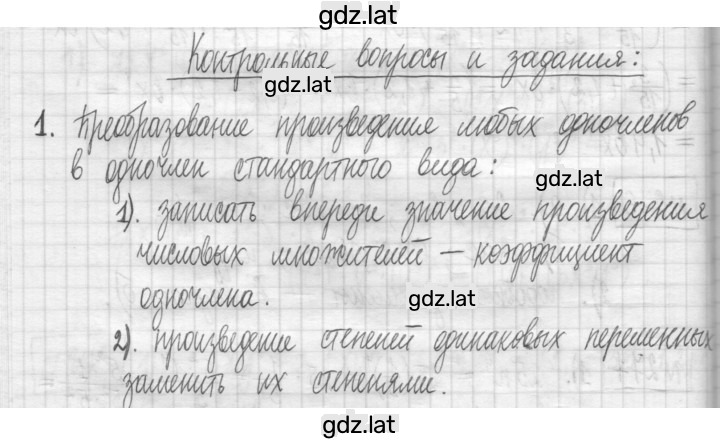 gdz.lat
Контрольные вопросы и задания:
gdz.lat
1. Преобразование произведения любых одночленов
в одночлен стандартного вида:
gdz.lat
1). записать впереди значение произведения
числовых множителей – коэффициент
одночлена.
gdz.lat
2). произведение степеней одинаковых переменных
заменить их степенями.
gdz.lat